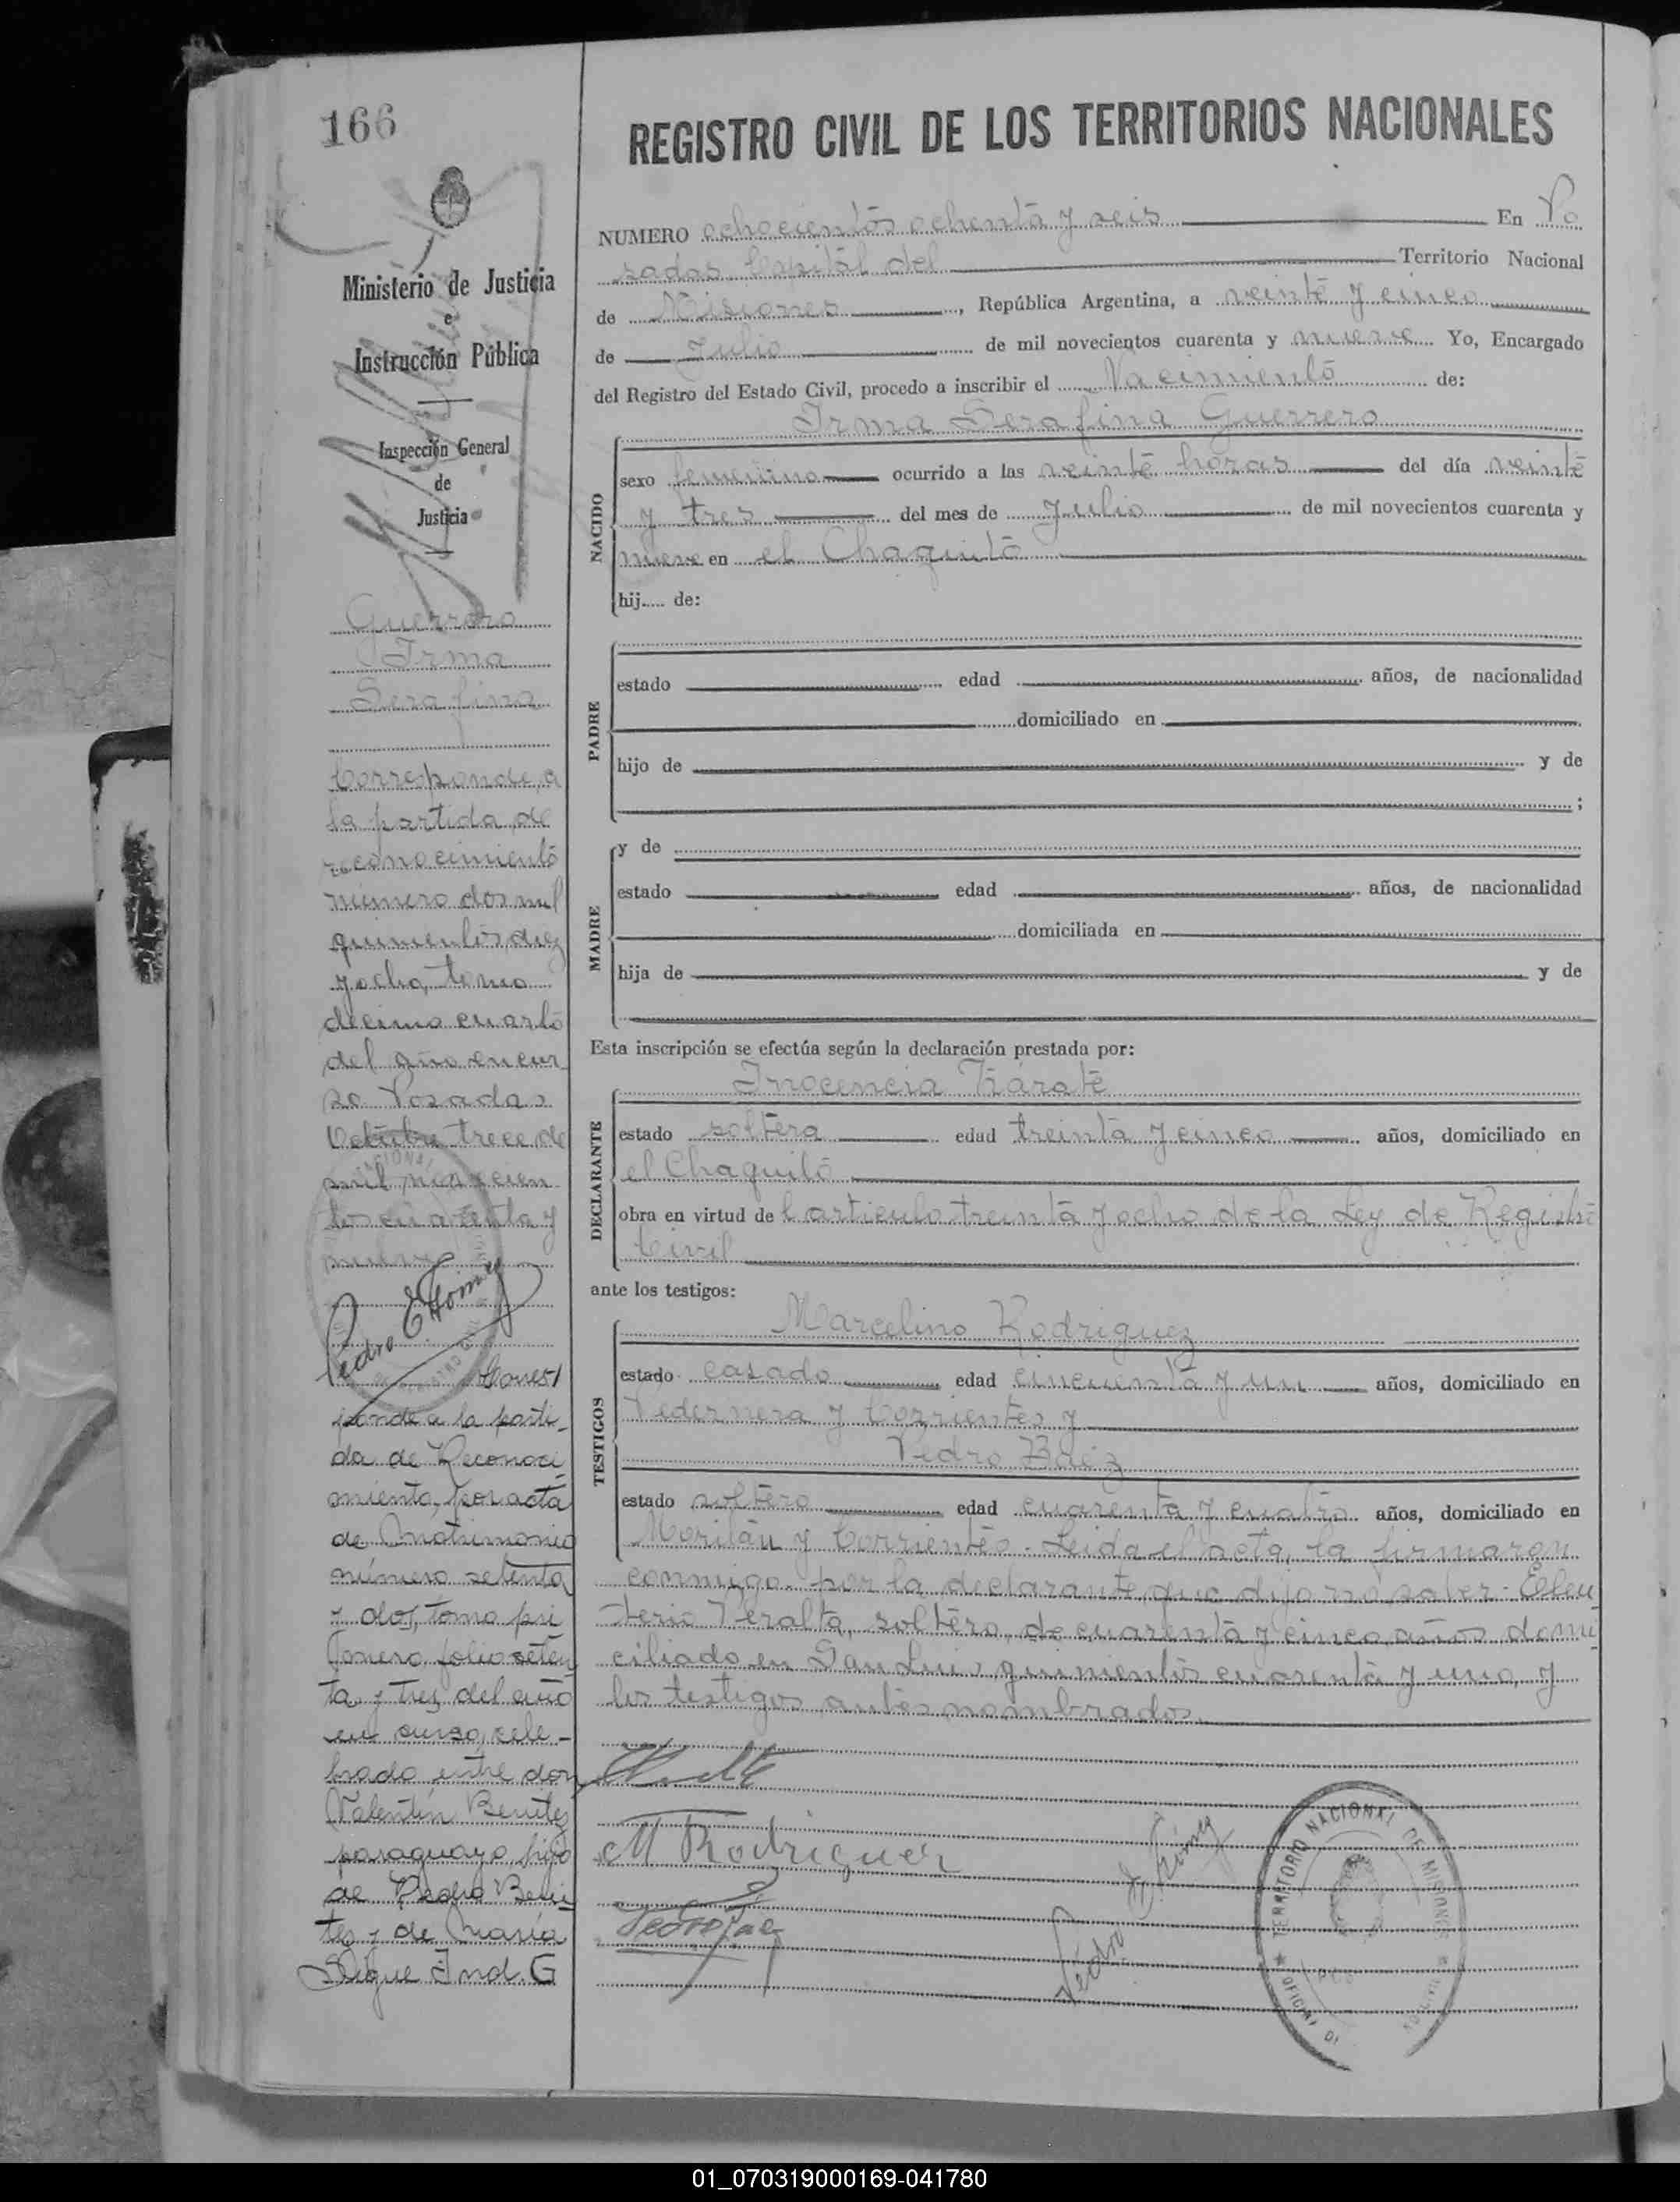 166
Ministerio de Justicia
e
Instrucción Pública
Inspección General
de
Justicia
Guerrero
Irma
Serafina
Corresponde a
la partida de
reconocimiento
número dos mil
quinientos diez
y ocho, tomo
décimo cuarto
del año en cur
so. Posadas
Octubre trece de
mil novecien
tos cuarenta y
nueve
Pedro E Gómez
Corres
ponde a la parti-
da de Reconoci
miento, por acta
de Matrimonio
número setenta
y dos, tomo pri
mero, folio seten
ta y tres del año
en curso, cele-
brado entre don
Valentín Benitez
paraguayo, hijo
de Pedro Beni
tez y de María
Sigue Ind. G
REGISTRO CIVIL DE LOS TERRITORIOS NACIONALES
NUMERO ochocientos ochenta y seis En Po
sadas Capital del Territorio Nacional
de Misiones, República Argentina, a veinte y cinco
de Julio de mil novecientos cuarenta y nueve Yo, Encargado
del Registro del Estado Civil, procedo a inscribir el Nacimiento de:
Irma Serafina Guerrero
NACIDO
sexo femenino ocurrido a las veinte horas del día veinte
y tres del mes de Julio de mil novecientos cuarenta y
nueve en el Chaquito
hij..... de:
PADRE
estado edad años, de nacionalidad
domiciliado en
hijo de y de
;
MADRE
y de
estado edad años, de nacionalidad
domiciliada en
hija de y de
Esta inscripción se efectúa según la declaración prestada por:
DECLARANTE
Inocencia Zárate
estado soltera edad treinta y cinco años, domiciliado en
el Chaquito
obra en virtud de l artículo treinta y ocho de la Ley de Registro
Civil
ante los testigos:
TESTIGOS
Marcelino Rodriguez
estado casado edad cincuenta y un años, domiciliado en
Pedernera y Corrientes y
Pedro Báez
estado soltero edad cuarenta y cuatro años, domiciliado en
y Corrientes - Leída el acta, la firmaron
conmigo por la declarante que dijo no saber: Eleu
terio Peralta, soltero, de cuarenta y cinco años domi
ciliado en San Luis quinientos cuarenta y uno, y
los testigos antes nombrados.
M Rodriguez
Pedro Baez
Pedro E Gómez
TERRITORIO NACIONAL DE MISIONES
01_070319000169-041780